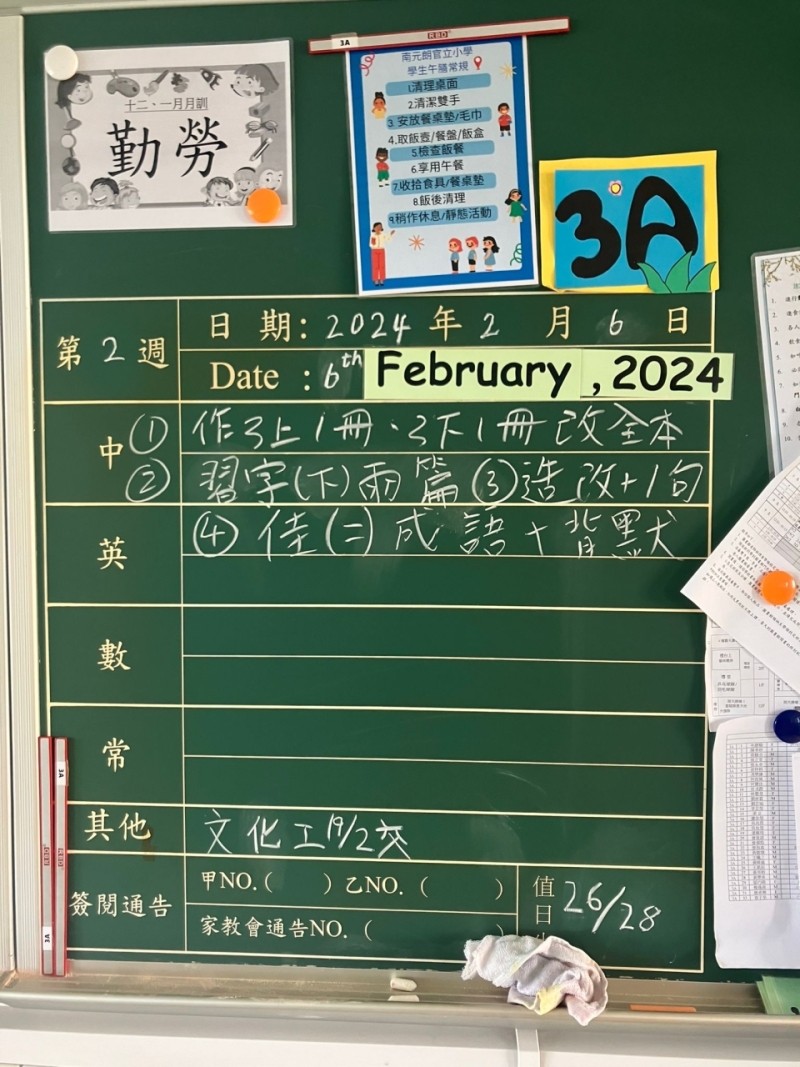 十二、一月月訓
勤勞
3A
RBD
南元朗官立小學
學生午膳常規
1.清理桌面
2.清潔雙手
3.安放餐桌墊/毛巾
4.取飯壺/餐盤/飯盒
5.檢查飯餐
6.享用午餐
7.收拾食具/餐桌墊
8.飯後清理
9.稍作休息/靜態活動
3A
第2週
日期:2024年2月6日
Date:6th February, 2024
中 ① 作3上1冊、3下1冊改全本
② 習字(下)兩篇 ③造改+1句
英 ④ 佳(二)成語+背默
數
常
其他 文化工19/2交
簽閱通告
甲NO.( )乙NO.( )
家教會通告NO.( )
值日 26/28
3A
RBD
RBD
3A